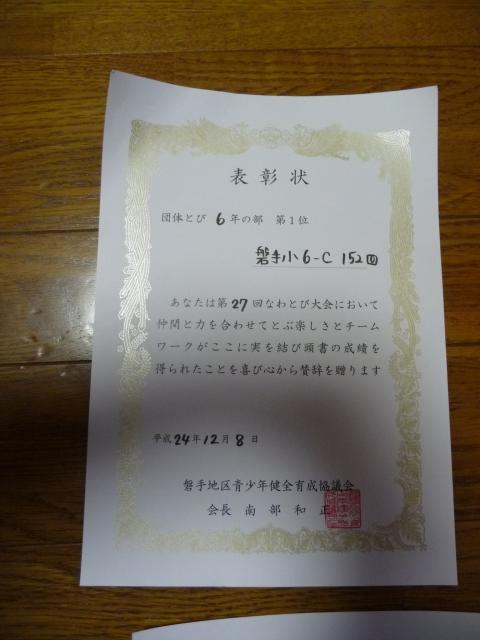 表彰状
団体とび 6年の部 第1位
磐手小6-C 152回
あなたは第27回なわとび大会において
仲間と力を合わせてとぶ楽しさとチーム
ワークがここに実を結び頭書の成績を
得られたことを喜び心から賛辞を贈ります
平成24年12月8日
磐手地区青少年健全育成協議会
会長 南部和正